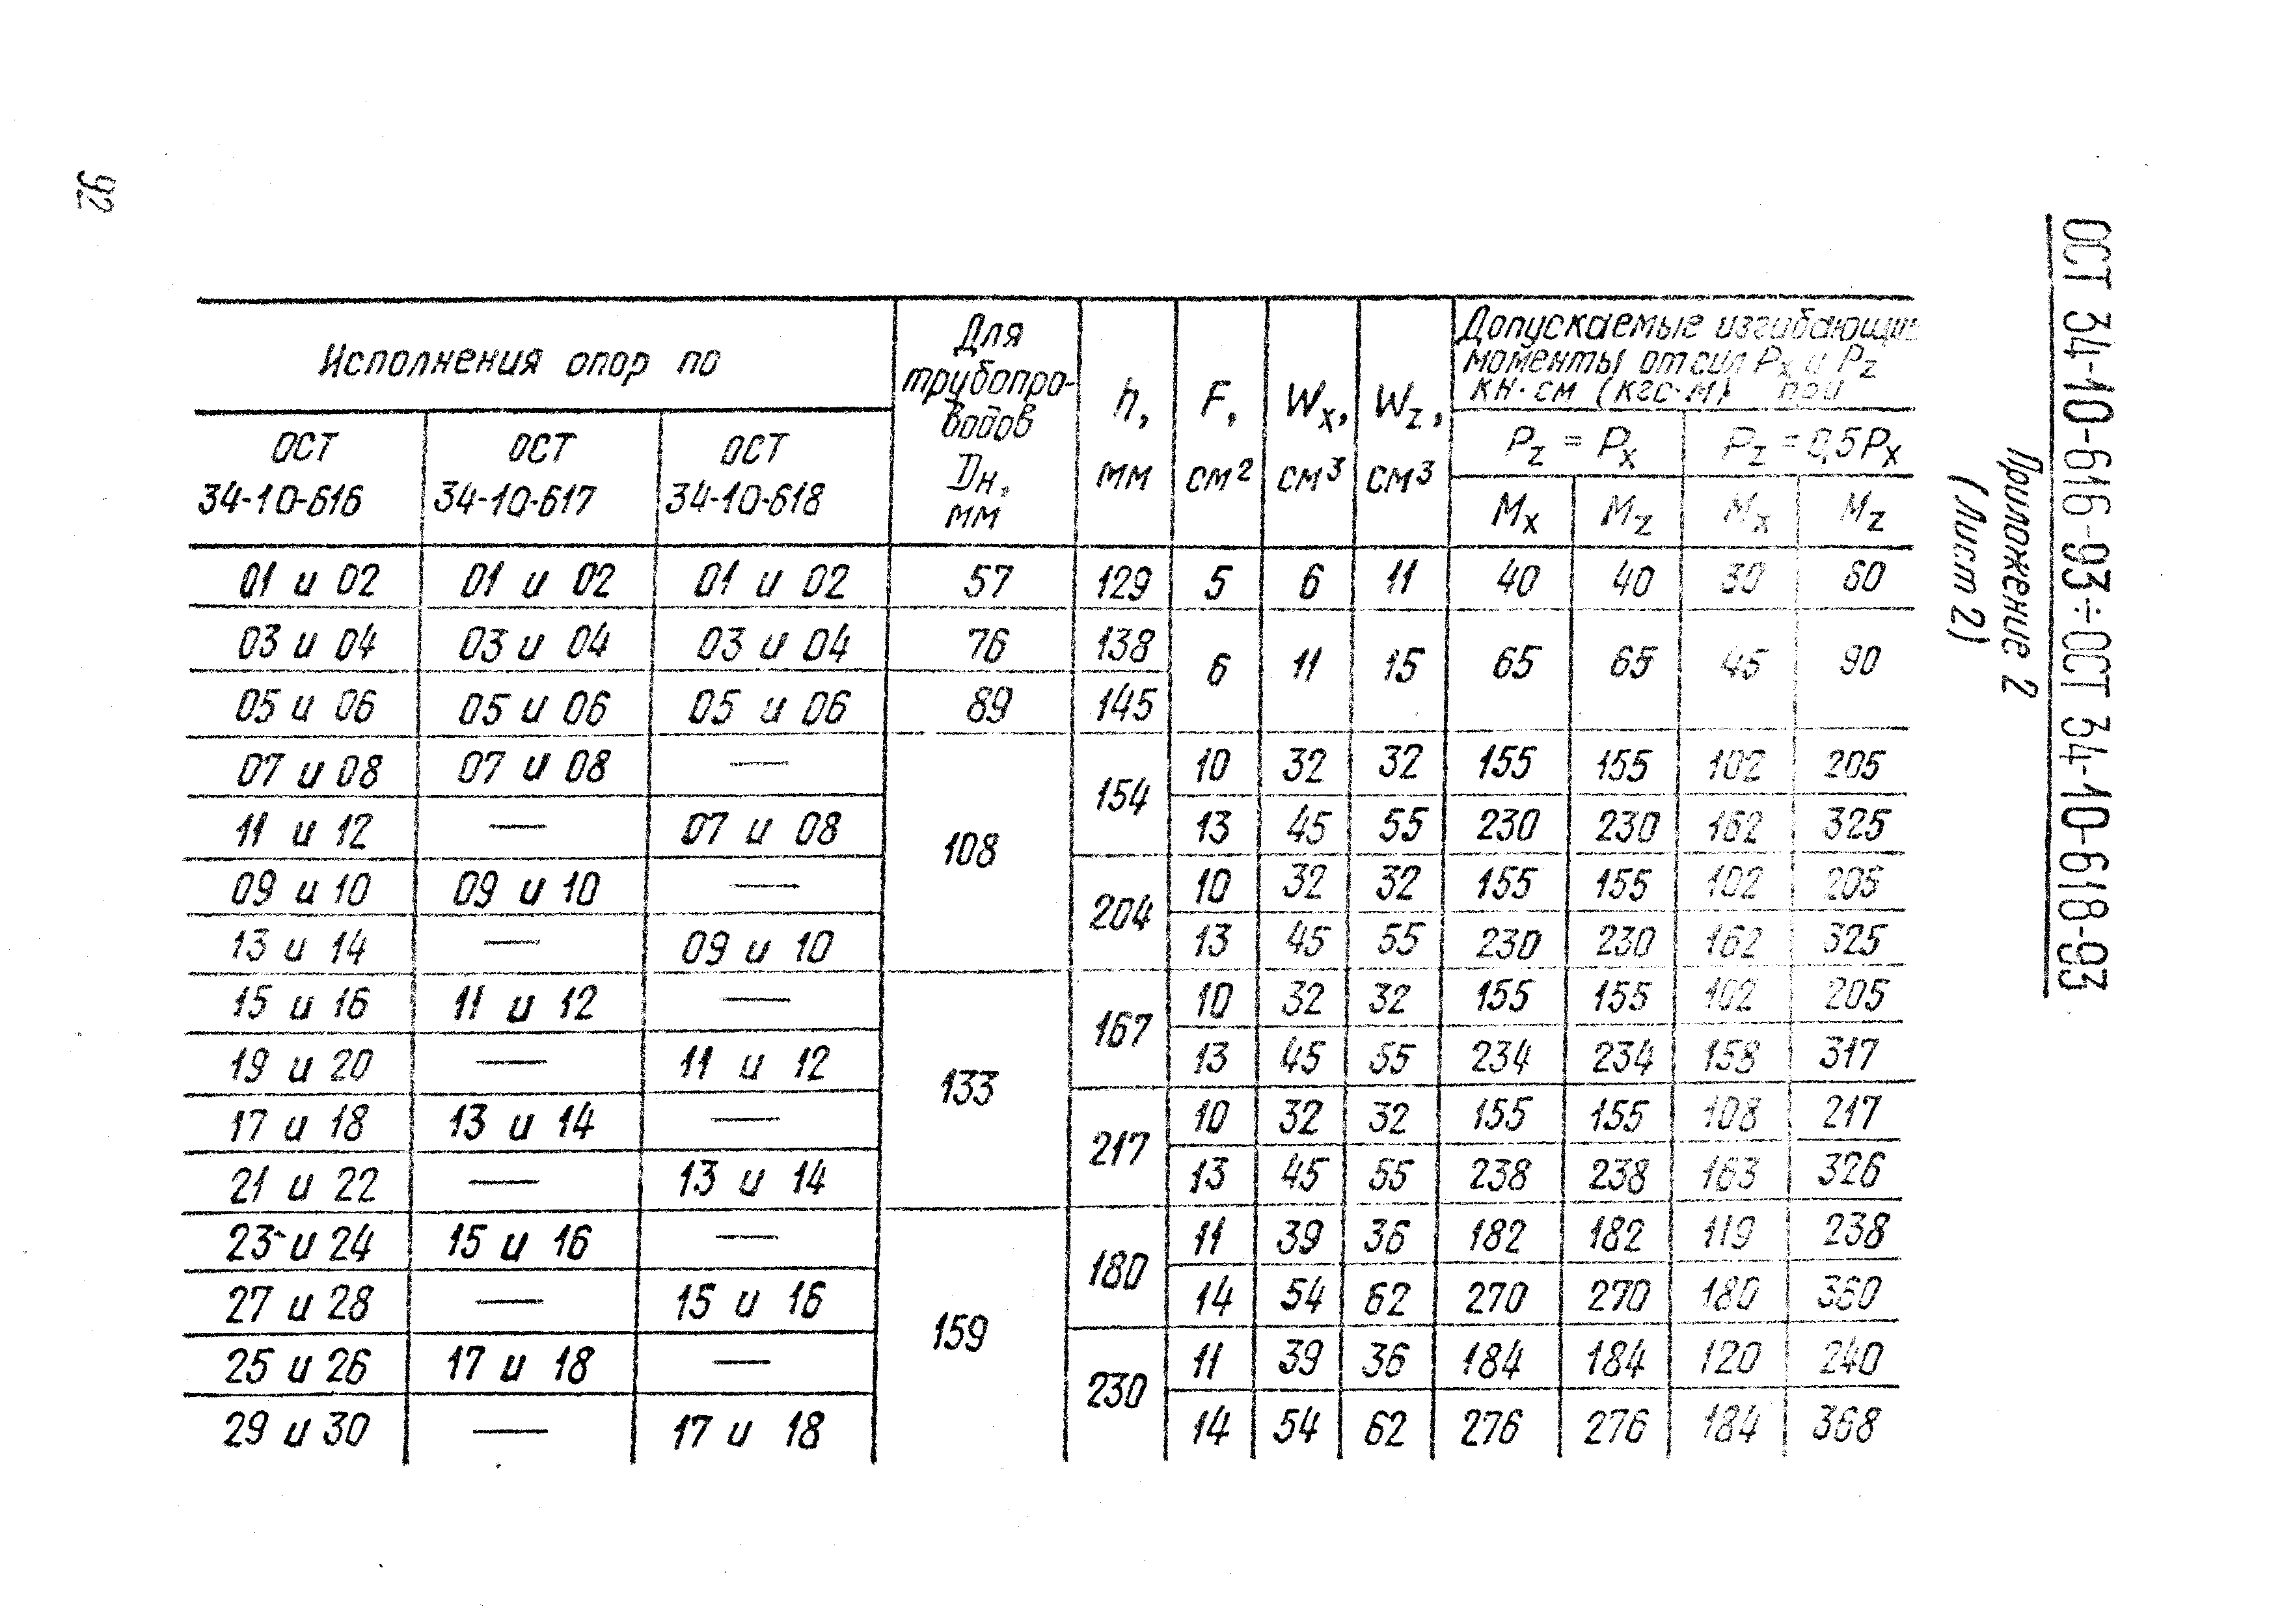 92
ОСТ 34-10-616-93÷ОСТ 34-10-618-93
Приложение 2
(Лист 2)
Исполнения опор по
Для трубопро-водов Dн, мм
h, мм
F, см²
Wx, см³
Wz, см³
Допускаемые изгибающие
моменты от сил Px и Pz
кН·см (кгс·м) при
ОСТ 34-10-616 ОСТ 34-10-617 ОСТ 34-10-618
Pz = Px Pz = 0,5Px
Mx Mz Mx Mz
01 и 02 01 и 02 01 и 02 57 129 5 6 11 40 40 30 60
03 и 04 03 и 04 03 и 04 76 138 6 11 15 65 65 45 90
05 и 06 05 и 06 05 и 06 89 145
07 и 08 07 и 08 — 108 154 10 32 32 155 155 102 205
11 и 12 — 07 и 08 13 45 55 230 230 162 325
09 и 10 09 и 10 — 204 10 32 32 155 155 102 205
13 и 14 — 09 и 10 13 45 55 230 230 162 325
15 и 16 11 и 12 — 133 167 10 32 32 155 155 102 205
19 и 20 — 11 и 12 13 45 55 234 234 158 317
17 и 18 13 и 14 — 217 10 32 32 155 155 108 217
21 и 22 — 13 и 14 13 45 55 238 238 163 326
23 и 24 15 и 16 — 159 180 11 39 36 182 182 119 238
27 и 28 — 15 и 16 14 54 62 270 270 180 360
25 и 26 17 и 18 — 230 11 39 36 184 184 120 240
29 и 30 — 17 и 18 14 54 62 276 276 184 368